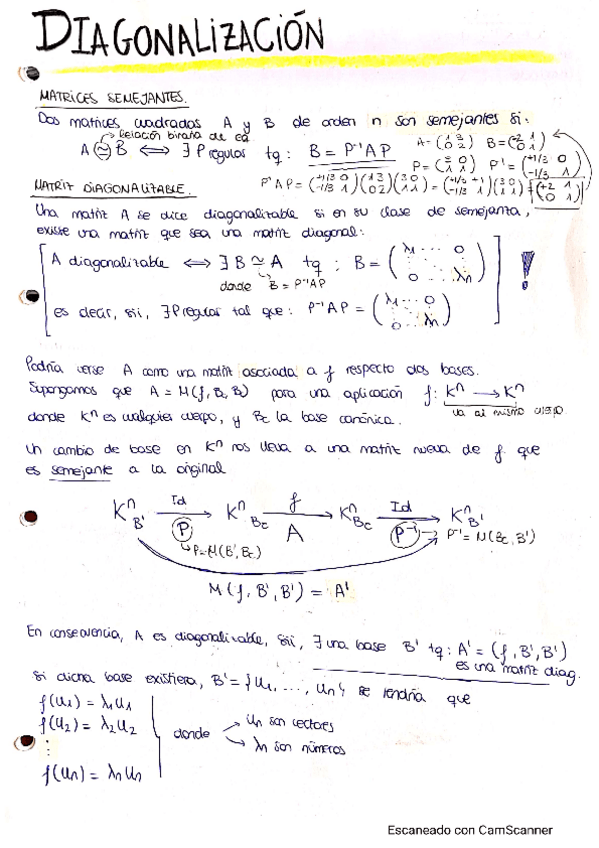 DIAGONALIZACIÓN
MATRICES SEMEJANTES.
Dos matrices cuadradas A y B de orden n son semejantes si:
Relación binaria de eq.
A ≃ B ⟺ ∃ P regular tq: B = P⁻¹AP
A = (1 3 / 0 2) B =
P = (3 0 / 1 1) P⁻¹ = (+1/3 0 / -1/3 1)
P⁻¹AP = (+1/3 0 / -1/3 1)(1 3 / 0 2)(3 0 / 1 1) =
MATRIZ DIAGONALIZABLE.
Una matriz A se dice diagonalizable si en su clase de semejanza,
existe una matriz que sea una matriz diagonal:
A diagonalizable ⟺ ∃ B ≃ A tq: B = (λ₁ ... 0 / ⋮ ⋱ ⋮ / 0 ... λn) !
donde B = P⁻¹AP
es decir, sii, ∃ P regular tal que: P⁻¹AP = (λ₁ ... 0 / ⋮ ⋱ ⋮ / 0 ... λn)
Podría verse A como una matriz asociada a f respecto dos bases.
Supongamos que A = M(f, Bc, Bc) para una aplicación f: Kⁿ → Kⁿ
va al mismo
donde Kⁿ es cualquier cuerpo, y Bc la base canónica.
Un cambio de base en Kⁿ nos lleva a una matriz nueva de f que
es semejante a la original
Kⁿ B' Id → Kⁿ Bc f → Kⁿ Bc Id → Kⁿ B'
P A P⁻¹ → P⁻¹ = M(Bc, B')
P = M(B', Bc)
M(f, B', B') = A'
En consecuencia, A es diagonalizable, sii, ∃ una base B' tq: A' = (f, B', B')
es una matriz diag.
Si dicha base existiera, B' = {u₁, ..., un} se tendría que
f(u₁) = λ₁u₁
f(u₂) = λ₂u₂
⋮
f(un) = λn un
donde → un son vectores
→ λn son números
Escaneado con CamScanner